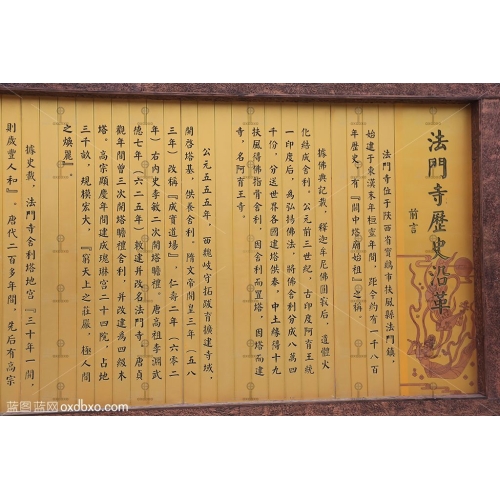 法門寺歷史沿革
前言
法門寺位于陝西省寶鷄市扶風縣法門鎮,
始建于東漢末年桓靈年間,距今約有一千八百
年歷史,有『關中塔廟始祖』之稱。
據佛典記載,釋迦牟尼佛圓寂后,遺體火
化結成舍利。公元前三世紀,古印度阿育王統
一印度后,為弘揚佛法,將佛舍利分成八萬四
千份,分送世界各國建塔供奉。中土緣得十九
扶風得佛指骨舍利,因舍利而置塔,因塔而建
寺,名阿育王寺。
公元五五五年,西魏岐守拓跋育擴建寺域,
開啓塔基,供養舍利。隋文帝開皇三年(五八
三年)改稱『成實道場』,仁壽二年(六〇二
年)右內史李敏二次開塔瞻禮。唐高祖李淵武
德七年(六二五年)敕建并改名法門寺。唐貞
觀年間曾三次開塔瞻禮舍利,并改建為四級木
塔。高宗顯慶年間建成瑰琳宮二十四院,占地
三千畝,規模宏大,『窮天上之莊嚴,極人間
之煥麗』。
據史載,法門寺舍利塔地宮『三十年一開,
則歲豐人和』。唐代二百多年間,先后有高宗
蓝图蓝网oxdbxo.com